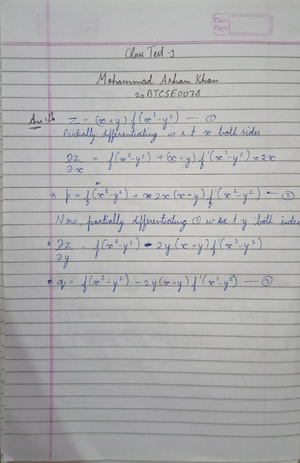 Date
Page
Class Test-3
Mohammad Arham Khan
20BTCSE0078
Ans:1) z = (x+y) f(x²-y²) — ①
Partially differentiating w.r.t x both sides
∂z/∂x = f(x²-y²) + (x+y) f'(x²-y²) × 2x
p = f(x²-y²) + 2x(x+y) f'(x²-y²) — ②
Now, partially differentiating ① w.r.t y both sides
∂z/∂y = f(x²-y²) - 2y(x+y) f'(x²-y²)
q = f(x²-y²) - 2y(x+y) f'(x²-y²) — ③